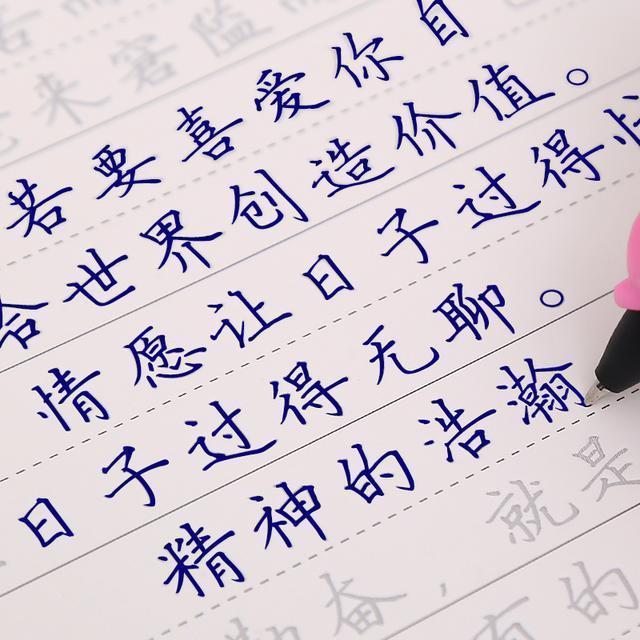 来
若要喜爱你自
给世界创造价值。
情愿让日子过得忙
日子过得无聊。
精神的浩瀚
就是
勤奋，
有的